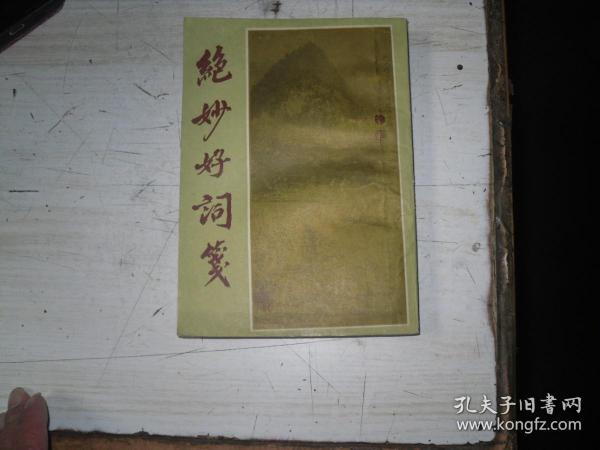 絕妙好詞箋
孔夫子旧書网
www.kongfz.com